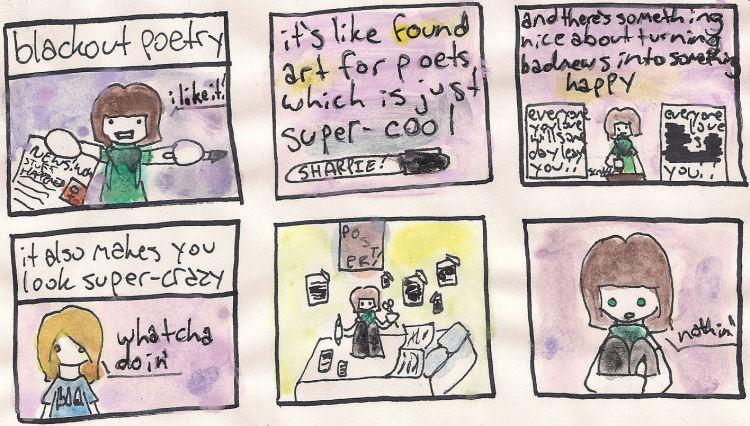 blackout poetry
i like it!
NEWS! WOW
STUFF
HAPPENED
it's like found
art for poets
which is just
super-cool
SHARPIE!
and there's something
nice about turning
bad news into something
happy
everyone
you love
will some
day leav
you!!
everyone
love
you!!
it also makes you
look super-crazy
whatcha
doin'
POS
TER!
nothin'